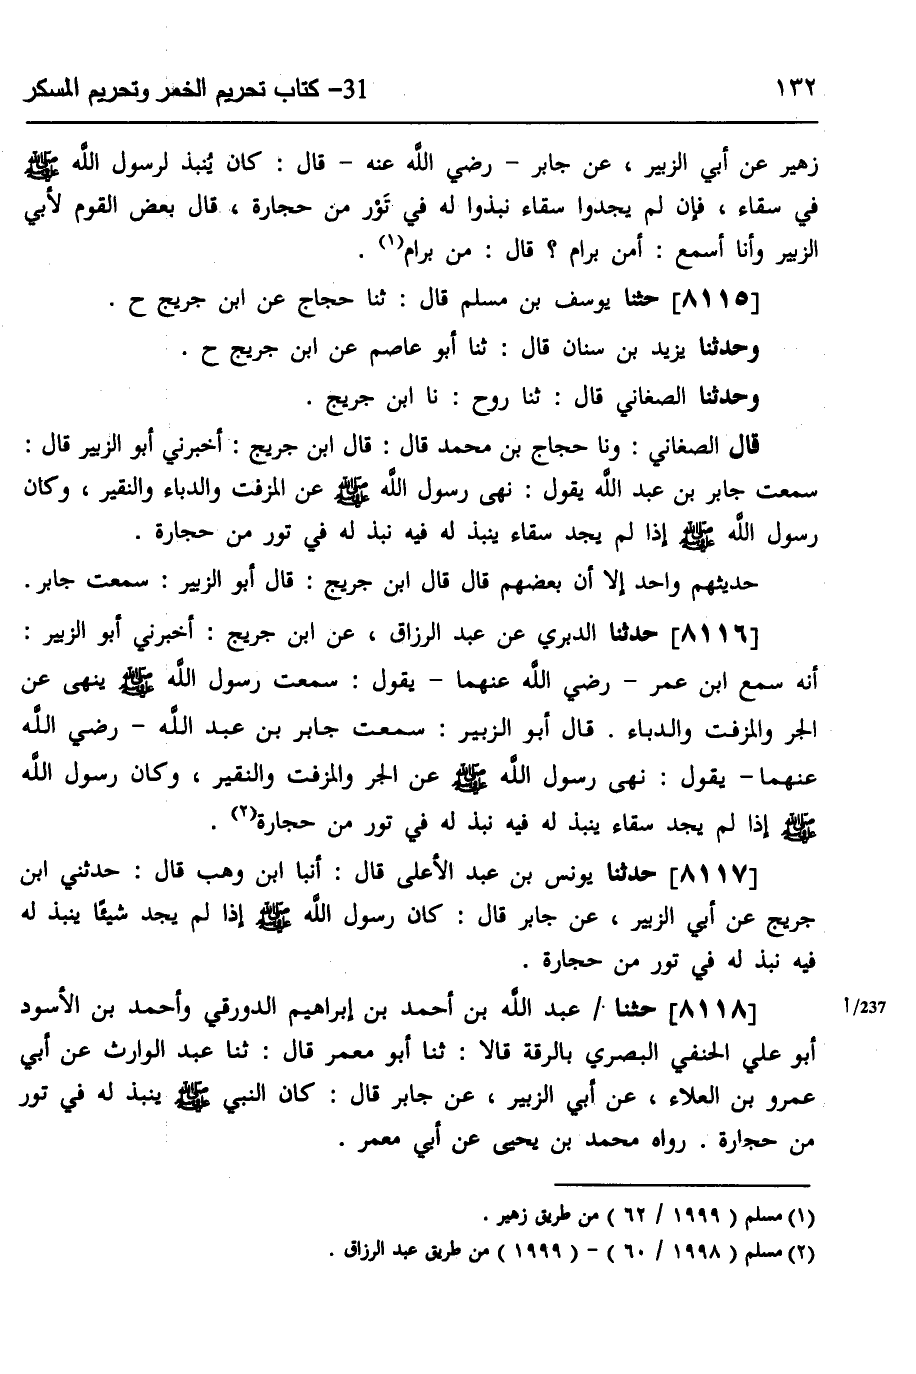 ١٣٢ 31- كتاب تحريم الخمر وتحريم المسكر
زهير عن أبي الزبير ، عن جابر - رضي اللَّه عنه - قال : كان يُنبذ لرسول اللَّه ﷺ
في سقاء ، فإن لم يجدوا سقاء نبذوا له في تَوْر من حجارة ، قال بعض القوم لأبي
الزبير وأنا أسمع : أمن برام ؟ قال : من برام(١) .
[٨١١٥] حثنا يوسف بن مسلم قال : ثنا حجاج عن ابن جريج ح .
وحدثنا يزيد بن سنان قال : ثنا أبو عاصم عن ابن جريج ح .
وحدثنا الصغاني قال : ثنا روح : نا ابن جريج .
قال الصغاني : ونا حجاج بن محمد قال : قال ابن جريج : أخبرني أبو الزبير قال :
سمعت جابر بن عبد اللَّه يقول : نهى رسول اللَّه ﷺ عن المزفت والدباء والنقير ، وكان
رسول اللَّه ﷺ إذا لم يجد سقاء ينبذ له فيه نبذ له في تور من حجارة .
حديثهم واحد إلا أن بعضهم قال قال ابن جريج : قال أبو الزبير : سمعت جابر .
[٨١١٦] حدثنا الدبري عن عبد الرزاق ، عن ابن جريج : أخبرني أبو الزبير :
أنه سمع ابن عمر - رضي اللَّه عنهما - يقول : سمعت رسول اللَّه ﷺ ينهى عن
الجر والمزفت والدباء . قال أبو الزبير : سمعت جابر بن عبد اللَّه - رضي اللَّه
عنهما- يقول : نهى رسول اللَّه ﷺ عن الجر والمزفت والنقير ، وكان رسول اللَّه
ﷺ إذا لم يجد سقاء ينبذ له فيه نبذ له في تور من حجارة(٢) .
[٨١١٧] حدثنا يونس بن عبد الأعلى قال : أنبا ابن وهب قال : حدثني ابن
جريج عن أبي الزبير ، عن جابر قال : كان رسول اللَّه ﷺ إذا لم يجد شيئًا ينبذ له
فيه نبذ له في تور من حجارة .
237/أ [٨١١٨] حثنا / عبد اللَّه بن أحمد بن إبراهيم الدورقي وأحمد بن الأسود
أبو علي الحنفي البصري بالرقة قالا : ثنا أبو معمر قال : ثنا عبد الوارث عن أبي
عمرو بن العلاء ، عن أبي الزبير ، عن جابر قال : كان النبي ﷺ ينبذ له في تور
من حجارة . رواه محمد بن يحيى عن أبي معمر .
(١) مسلم ( ١٩٩٩ / ٦٢ ) من طريق زهير .
(٢) مسلم ( ١٩٩٨ / ٦٠ ) - ( ١٩٩٩ ) من طريق عبد الرزاق .